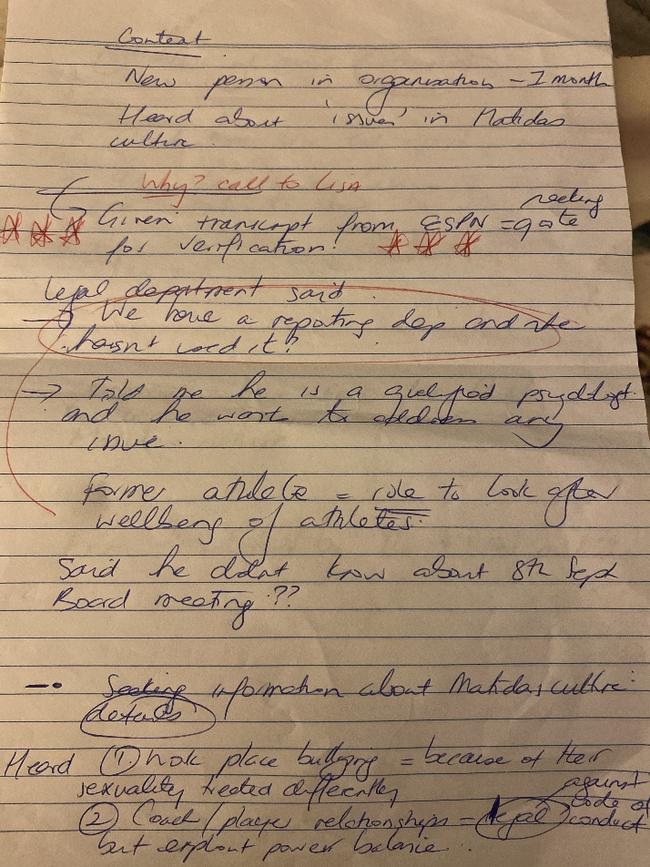 Context
New person in organisation - 1 month
Heard about 'issues' in Matidas
culture.
Why? call to LISA
→ Given transcript from ESPN = quote seeking
for verification!
legal department said.
→ We have a reporting dep and she
hasn't used it?
→ Told me he is a qualified psychologist
and he want to address any
issue.
Former athlete = role to look after
wellbeing of athletes.
Said he didnt know about 8th Sept
Board meeting??
Seeking information about Matidas culture:
details
Heard ① work place bullying = because of their
sexuality treated differently
② Coach/player relationships = legal against code of conduct
but exploit power balance...